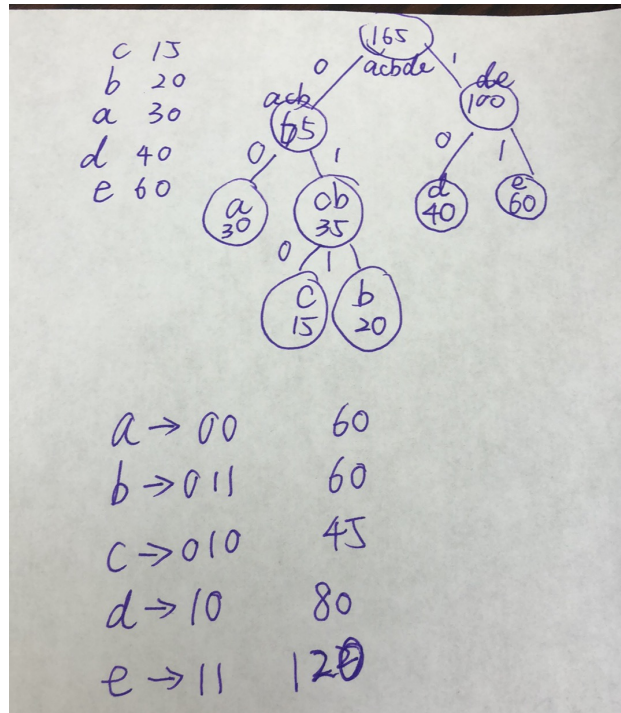 c 15
b 20
a 30
d 40
e 60
165
acbde
0 1
acb
65
de
100
0 1
0 1
a
30
cb
35
d
40
e
60
0 1
c
15
b
20
a → 00 60
b → 011 60
c → 010 45
d → 10 80
e → 11 120